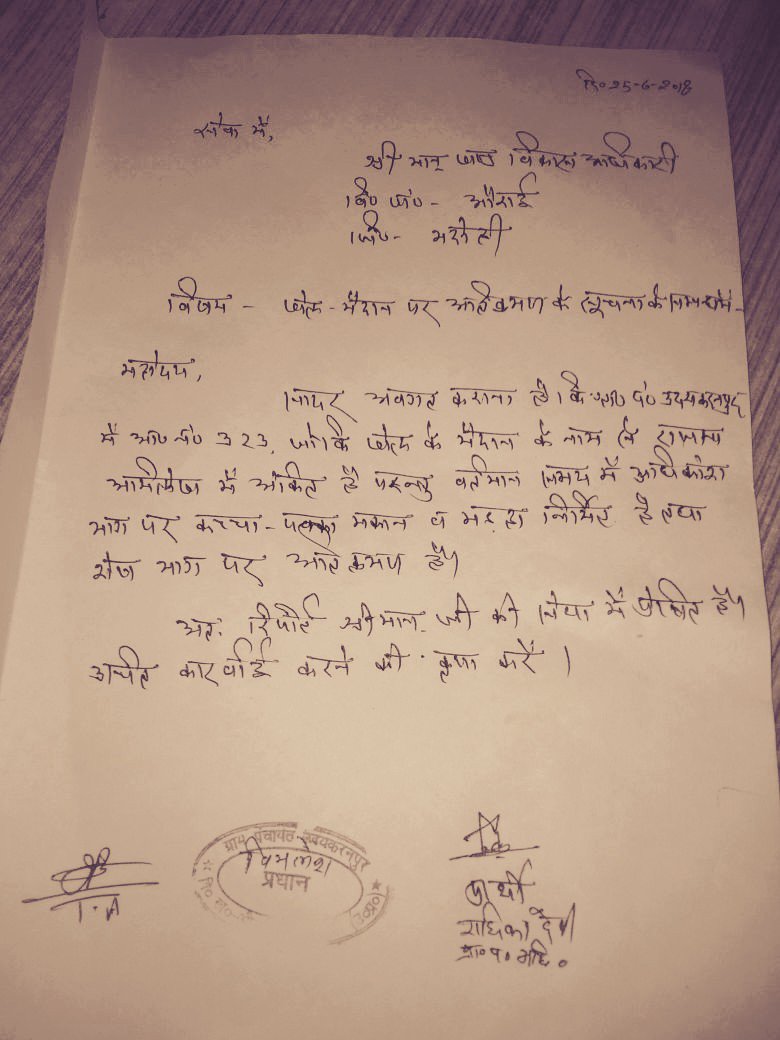 दि० 25-6-2018
सेवा में,
श्री मान् खण्ड विकास अधिकारी
वि० खं० - औराई
जि० - भदोही
विषय - खेल - मैदान पर अतिक्रमण के सूचना के सम्बन्ध में -
महोदय,
सादर अवगत कराना है। कि ग्रा० पं० उदयकरनपुर
में आ० नं० 323, जो कि खेल के मैदान के नाम से राजस्व
अभिलेख में अंकित है परन्तु वर्तमान समय में अधिकांश
भाग पर कच्चा - पक्का मकान व मड़हा निर्मित है तथा
शेष भाग पर अतिक्रमण है।
अतः रिपोर्ट श्रीमान् जी की सेवा में प्रेषित है।
उचित कारवाई करने की कृपा करें।
ग्राम पंचायत - उदयकरनपुर
विमलेश
प्रधान
उ०प्र०
T.A
प्रार्थी
राधिका देवी
ग्रा० पं० अधि०